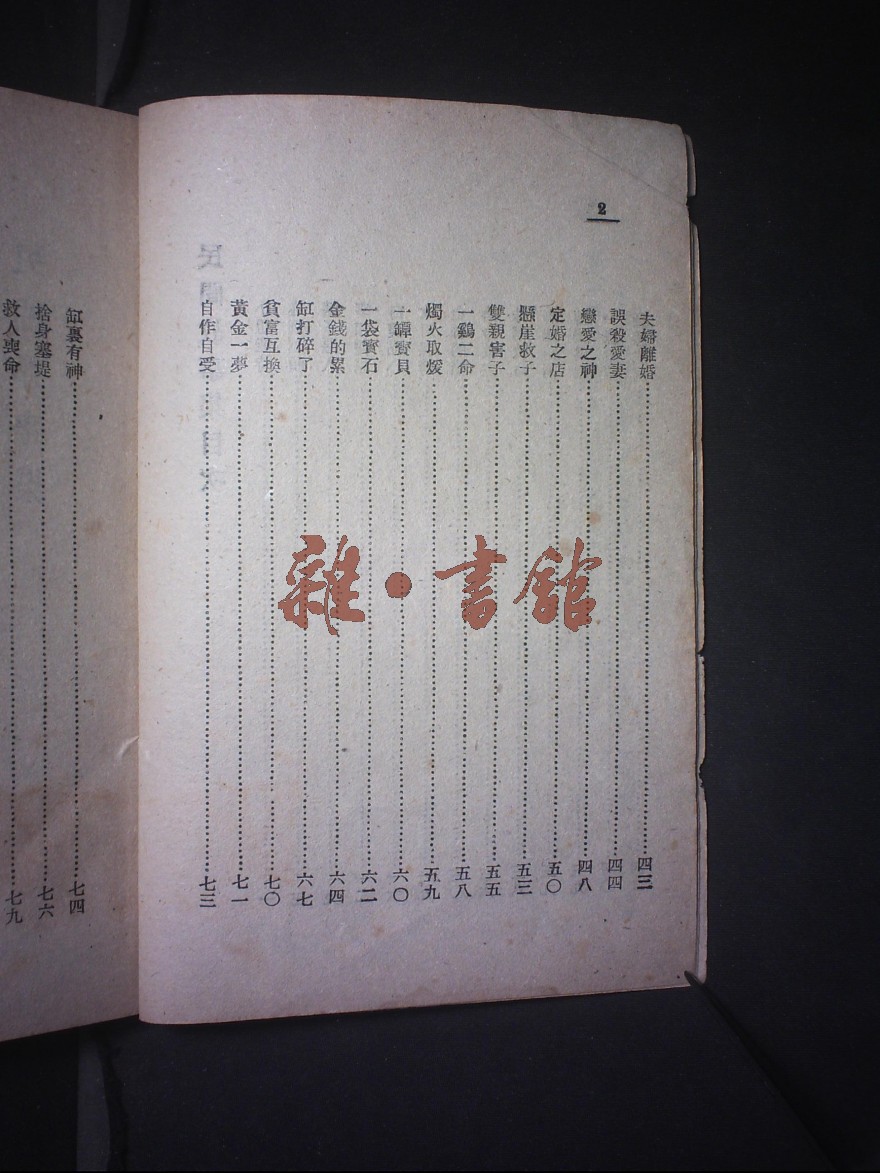 2
夫婦離婚…………四三
誤殺愛妻…………四四
戀愛之神…………四八
定婚之店…………五〇
懸崖救子…………五三
雙親害子…………五五
一鷄二命…………五八
燭火取煖…………五九
一罈寳貝…………六〇
一袋寳石…………六二
金錢的累…………六四
缸打碎了…………六七
貧富互換…………七〇
黃金一夢…………七一
自作自受…………七三
缸裏有神…………七四
捨身塞堤…………七六
救人喪命…………七九
雜·書館